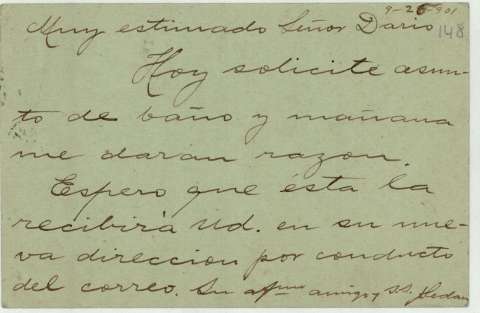 9-26-901
148
Muy estimado Señor Dario
Hoy solicite asun-
to de baño y mañana
me daran razon.
Espero que ésta la
recibirá Ud. en su nue-
va direccion por conducto
del correo. Su afmo amigo y SS.